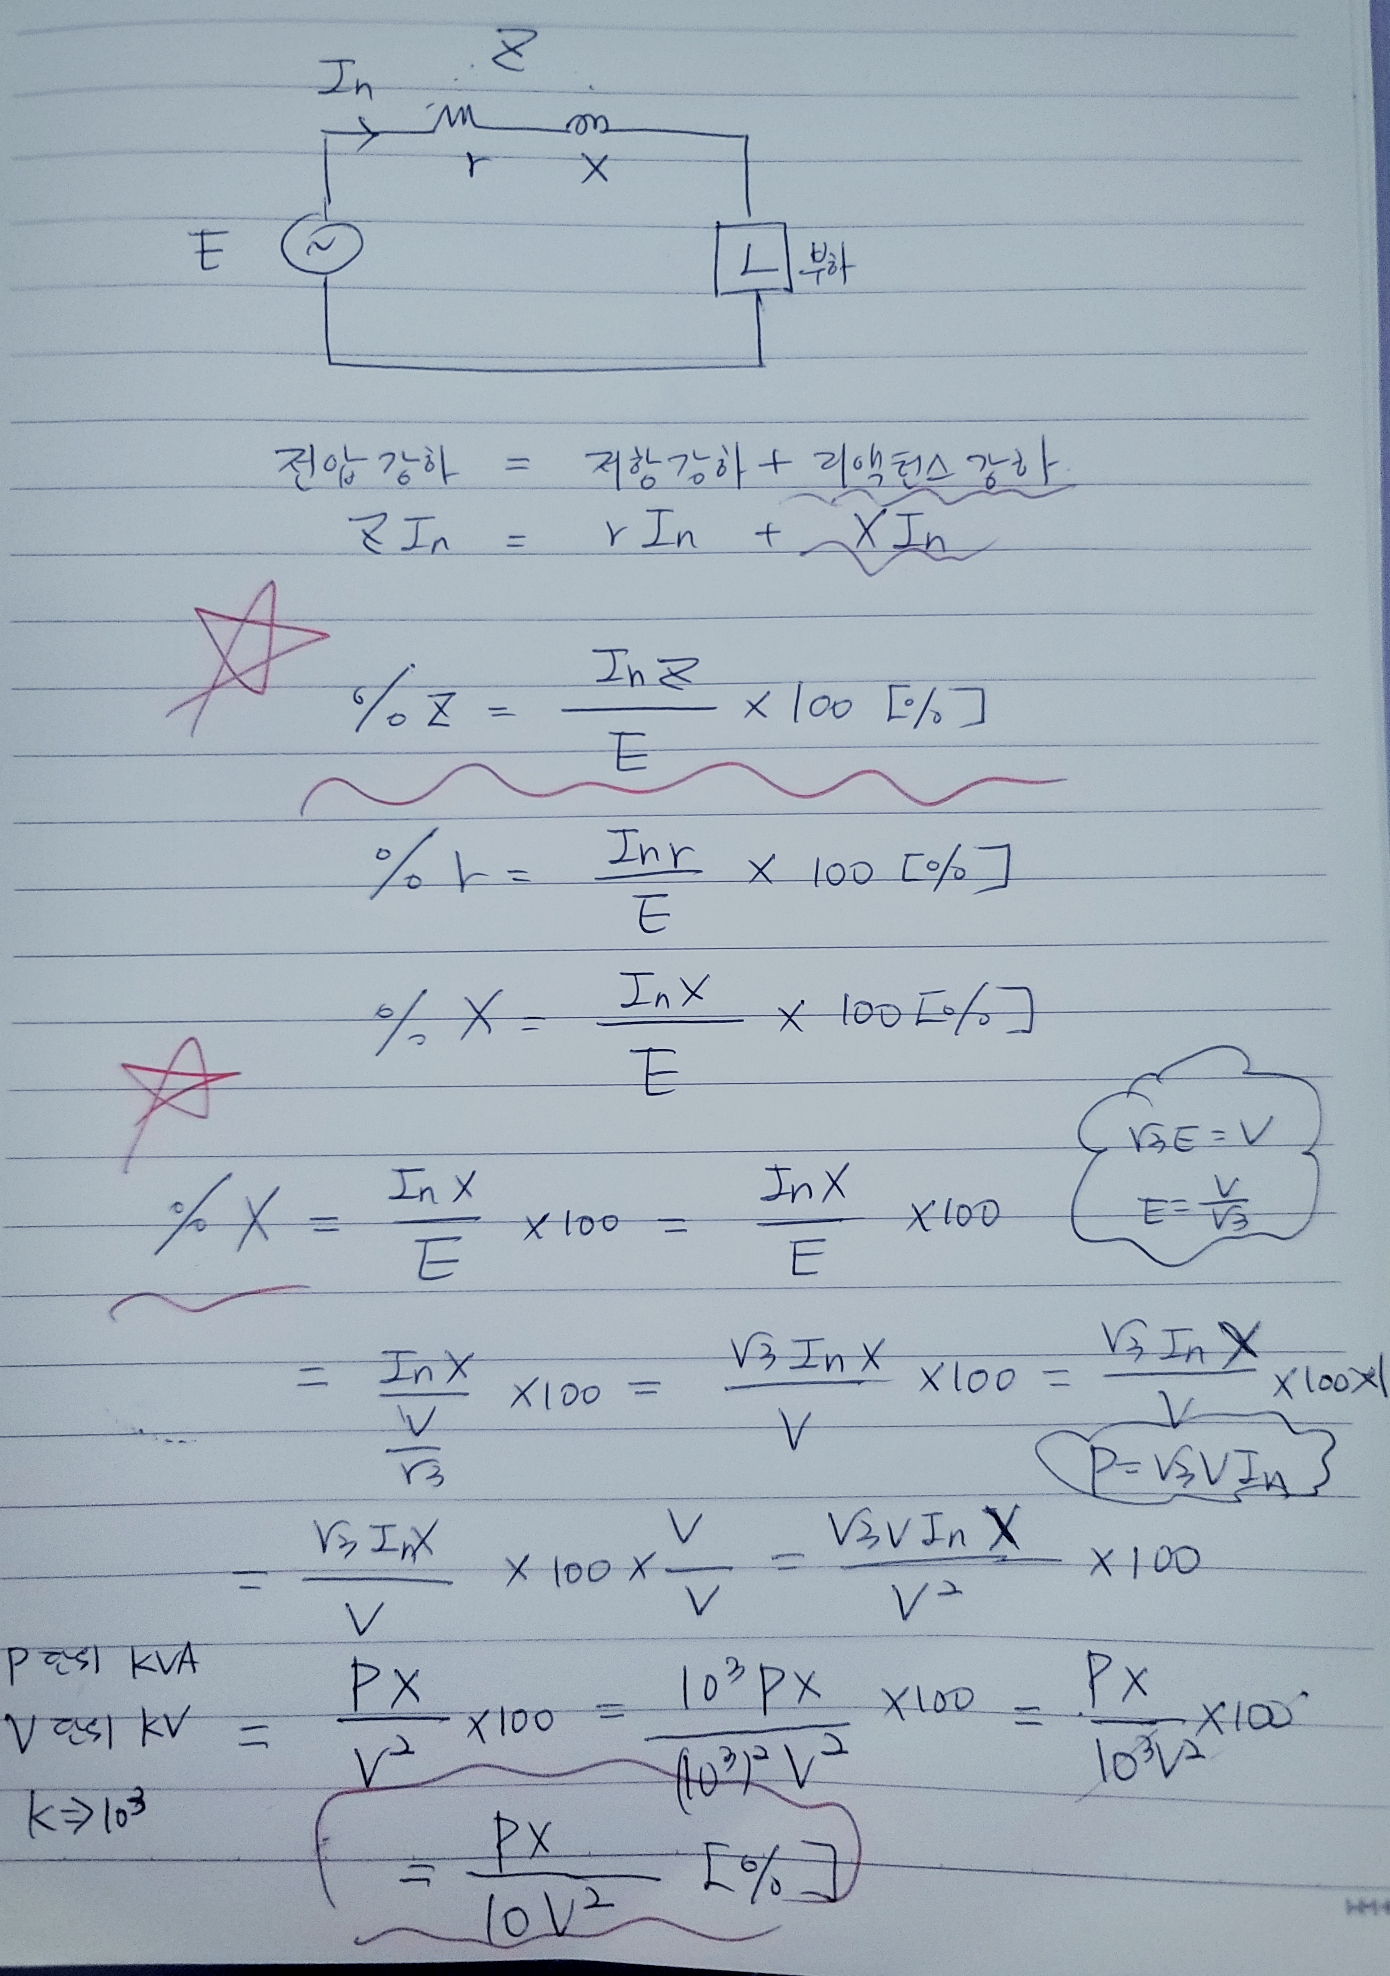 Z
In
r X
E ~ L 부하
전압강하 = 저항강하 + 리액턴스 강하
Z In = r In + X In
%Z = In Z / E × 100 [%]
%r = In r / E × 100 [%]
%X = In X / E × 100 [%]
√3E = V
E = V / √3
%X = In X / E × 100 = In X / E × 100
= In X / (V / √3) × 100 = √3 In X / V × 100 = √3 In X / V × 100 × 1
P = √3 V In
= √3 In X / V × 100 × V / V = √3 V In X / V² × 100
P 단위 KVA
V 단위 KV
= PX / V² × 100 = 10³ PX / (10³)² V² × 100 = PX / 10³V² × 100
K ⇒ 10³
= PX / 10V² [%]